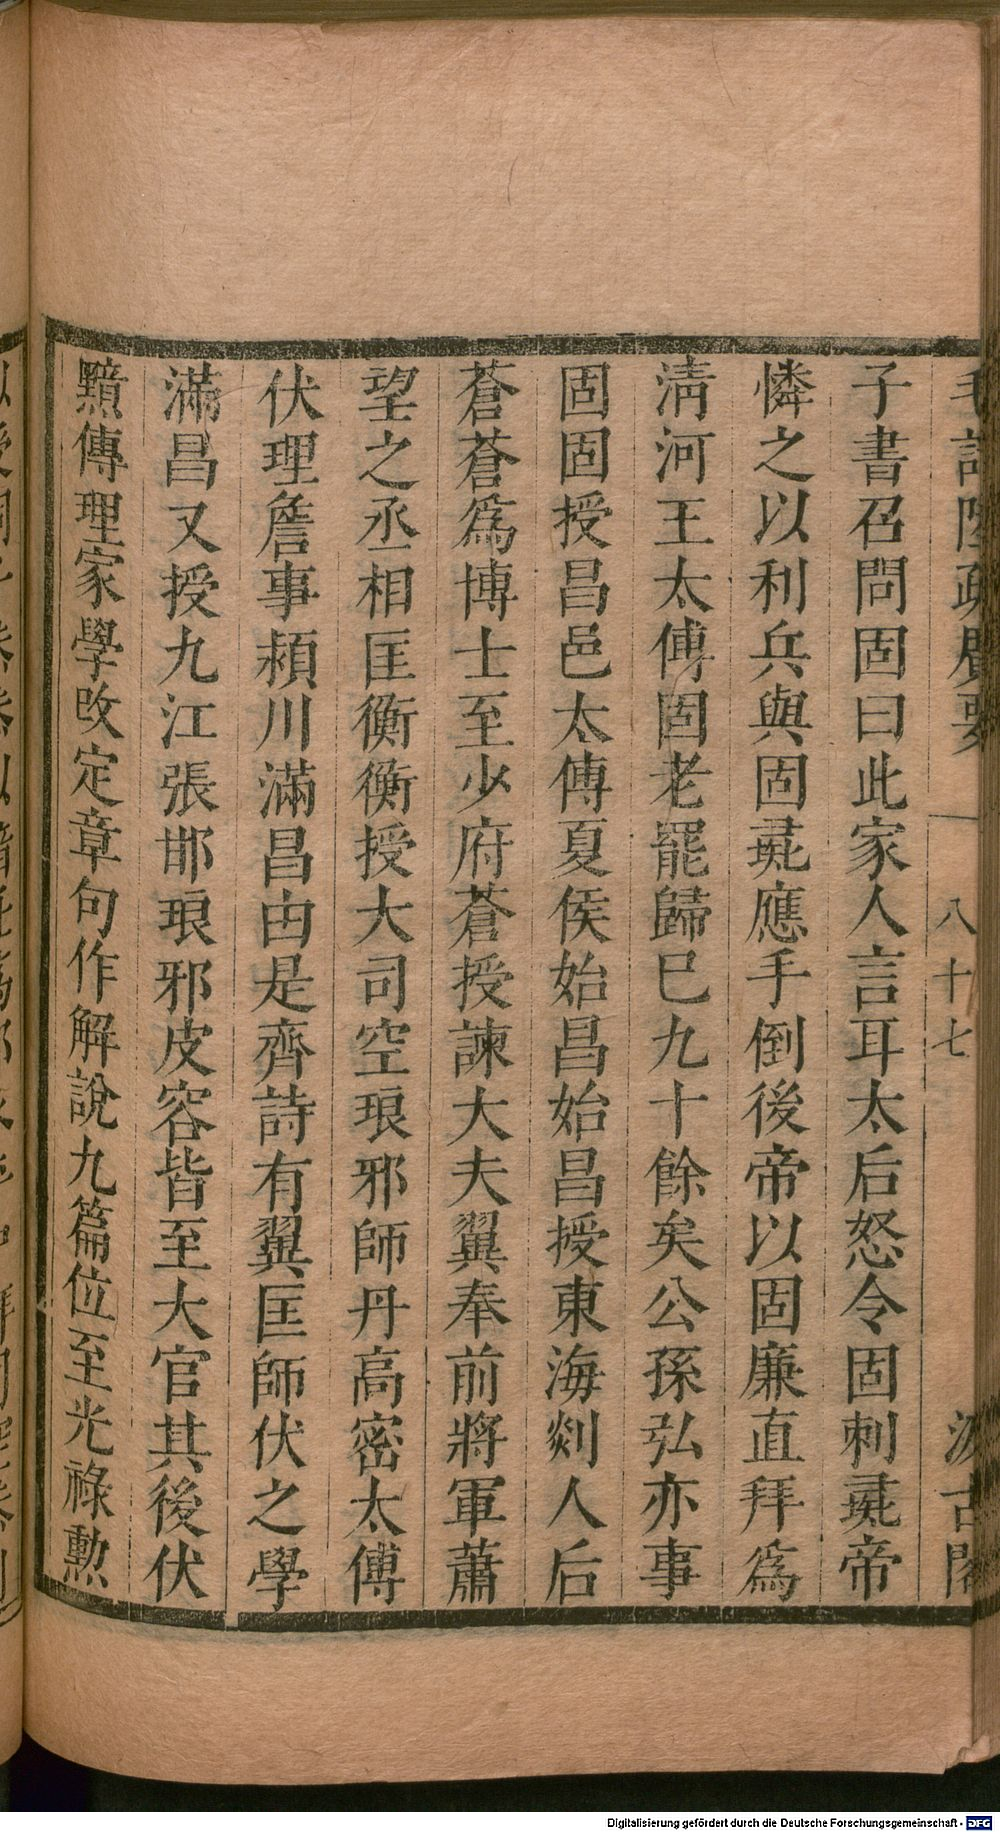 毛詩陸疏廣要 八十七 汲古閣
子書召問固曰此家人言耳太后怒令固刺彘帝
憐之以利兵與固彘應手倒後帝以固廉直拜爲
清河王太傅固老罷歸已九十餘矣公孫弘亦事
固固授昌邑太傅夏侯始昌始昌授東海剡人后
蒼蒼爲博士至少府蒼授諫大夫翼奉前將軍蕭
望之丞相匡衡衡授大司空琅邪師丹高密太傅
伏理詹事頴川滿昌由是齊詩有翼匡師伏之學
滿昌又授九江張邯琅邪皮容皆至大官其後伏
黯傳理家學改定章句作解說九篇位至光祿勲
Digitalisierung gefördert durch die Deutsche Forschungsgemeinschaft - DFG